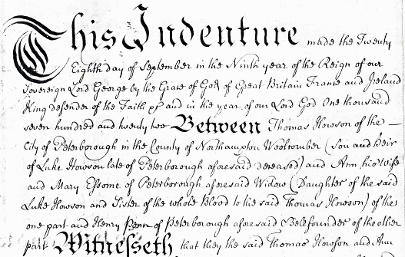 This Indenture made the Twenty
Eighth day of September in the Ninth year of the Reign of our
Sovereign Lord George by the Grace of God of Great Britain France and Ireland
King defender of the Faith & and in the year of our Lord God One thousand
seven hundred and twenty two Between Thomas Howson of the
City of Peterborough in the County of Northampton Woolcomber (Son and Heir
of Luke Howson late of Peterborough aforesaid deceased) and Ann his Wife
and Mary of Peterborough aforesaid Widow (Daughter of the said
Luke Howson and Sister of the whole Blood to the said Thomas Howson) of the
one part and Henry Penn of Peterborough aforesaid Bellfounder of the other
part Witnesseth that they the said Thomas Howson and Ann